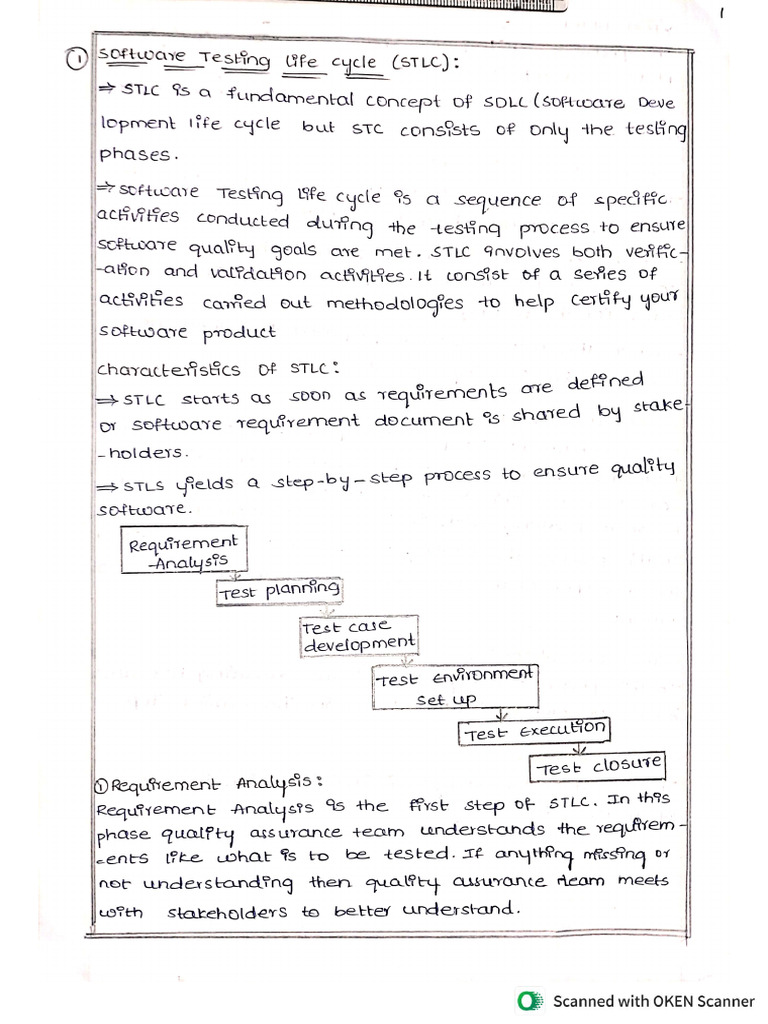 1
① Software Testing Life Cycle (STLC):
⇒ STLC is a fundamental concept of SDLC (Software Deve
lopment life cycle but STC consists of only the testing
phases.
⇒ Software Testing Life cycle is a sequence of specific
activities conducted during the testing process to ensure
software quality goals are met. STLC involves both verific-
-ation and validation activities. It consist of a series of
activities carried out methodologies to help certify your
software product
characteristics of STLC:
⇒ STLC starts as soon as requirements are defined
or software requirement document is shared by stake-
-holders.
⇒ STLS yields a step-by-step process to ensure quality
software.
Requirement
-Analysis
Test planning
Test case
development
Test Environment
Set up
Test Execution
Test closure
① Requirement Analysis:
Requirement Analysis is the first step of STLC. In this
phase quality assurance team understands the requirem-
-ents like what is to be tested. If anything missing or
not understanding then quality assurance team meets
with stakeholders to better understand.
Scanned with OKEN Scanner